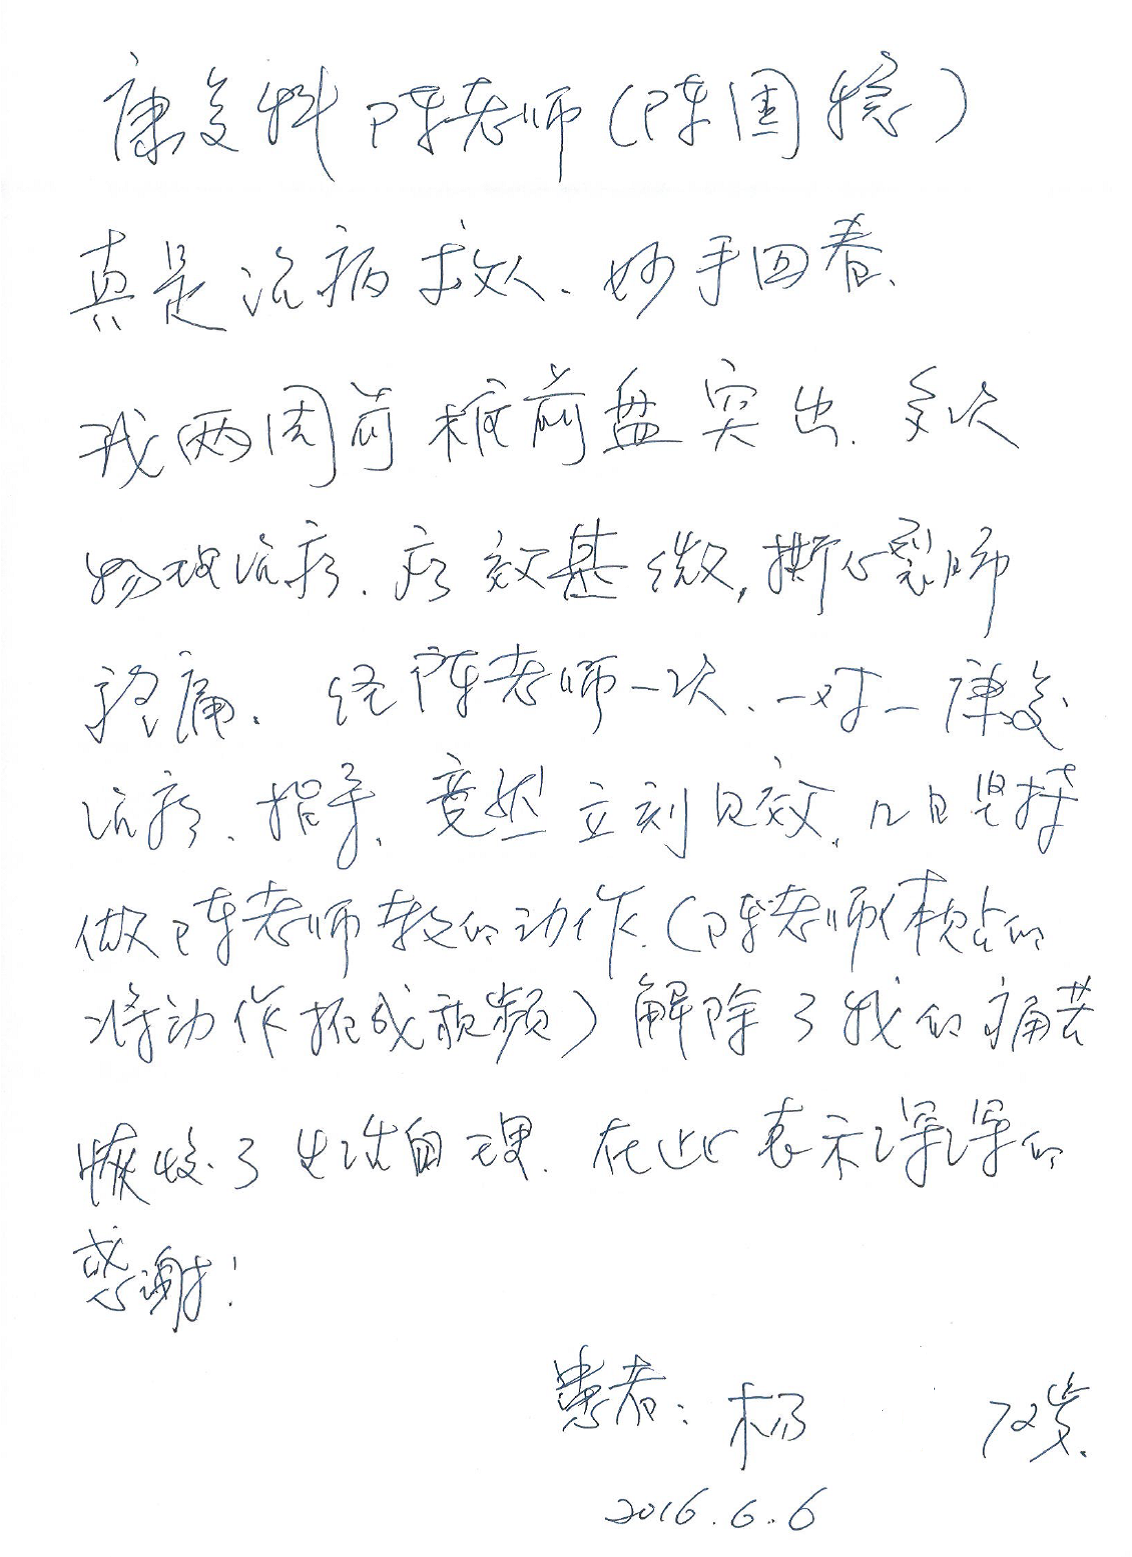 康复科陈老师(陈国稳)
真是治病救人、妙手回春、
我两周前椎间盘突出、多次
物理治疗、疗效甚微,撕心裂肺
疼痛、经陈老师一次、一对一康复
治疗、指导,竟然立刻见效,几日坚持
做陈老师教的动作、(陈老师体贴的
将动作拍成视频)解除了我的痛苦
恢复了生活自理、在此表示深深的
感谢!
患者:杨 72岁、
2016.6.6